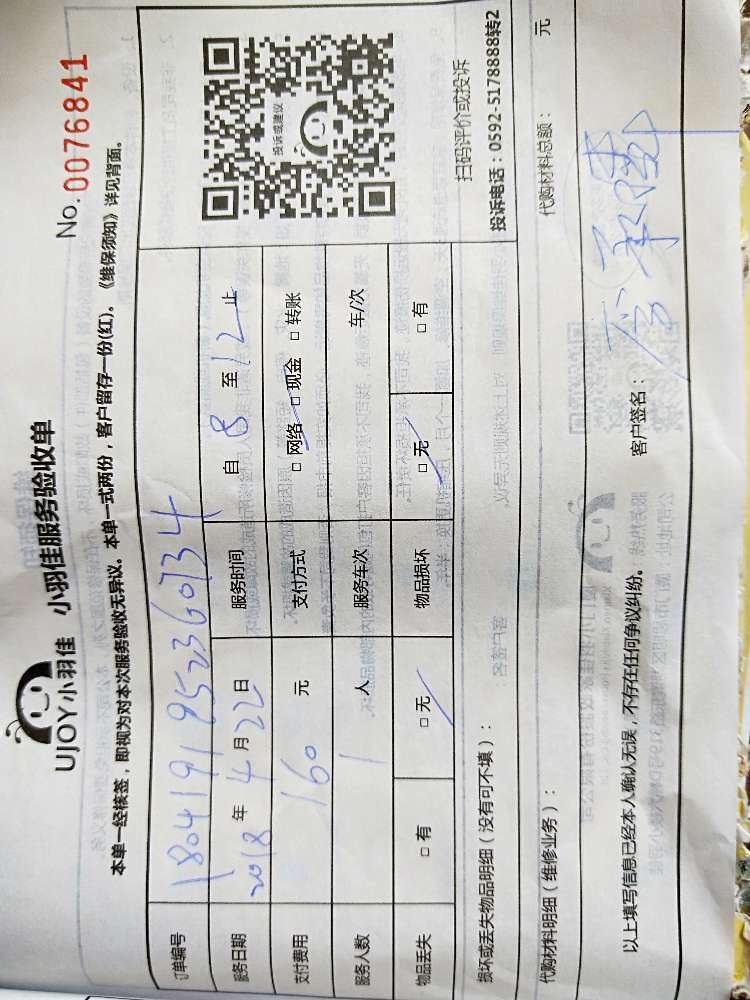 UJOY小羽佳 小羽佳服务验收单
No. 0076841
本单一经核签，即视为对本次服务验收无异议。本单一式两份，客户留存一份(红)。《维保须知》详见背面。
订单编号 1804191952360734
服务日期 2018 年 4 月 22 日 服务时间 自 8 至 12 止
支付费用 160 元 支付方式 □ 网络 □ 现金 □ 转账
服务人数 1 人 服务车次 车/次
物品丢失 □ 有 □ 无 物品损坏 □ 无 □ 有
投诉或建议
扫码评价或投诉
投诉电话：0592-5178888转2
损坏或丢失物品明细（没有可不填）：
代购材料明细（维修业务）： 代购材料总额： 元
以上填写信息已经本人确认无误，不存在任何争议纠纷。 客户签名：